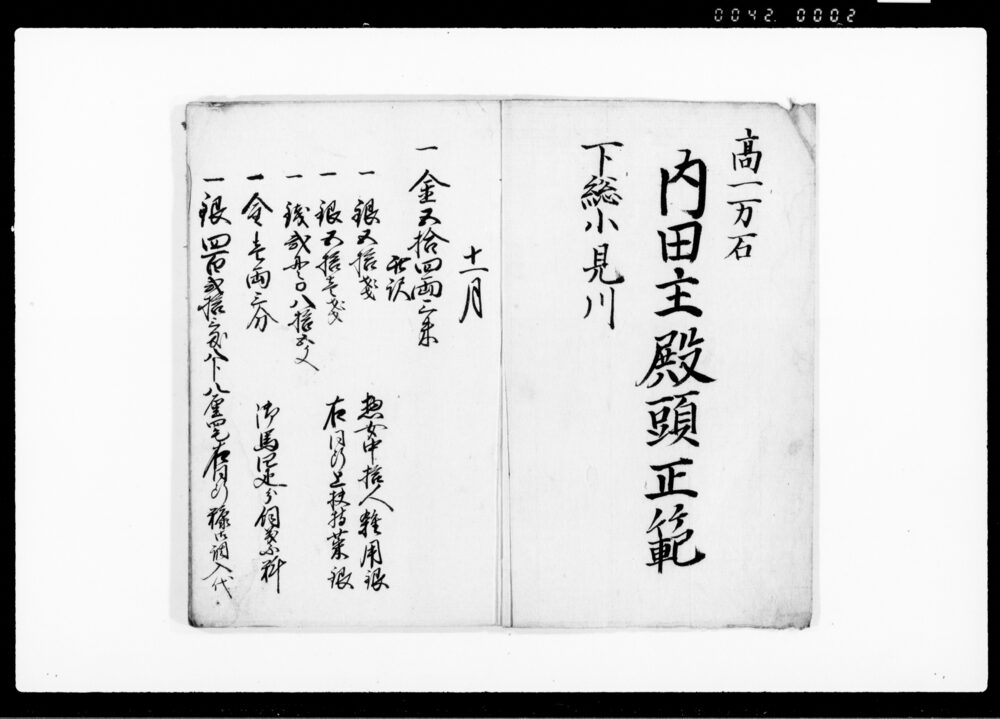 0042. 0002
高一万石
内田主殿頭正範
下総小見川
十一月
一 金五拾四両三朱
一 銀五拾弐匁 惣女中拾人雑用銀
一 銀五拾壱匁 右同断上扶持菜銀
一 銭弐貫〇八拾五文
一 金壱両三分 御馬四疋分飼葉料
一 銀四百弐拾三匁八分八厘四毛 右同断糠御調入代